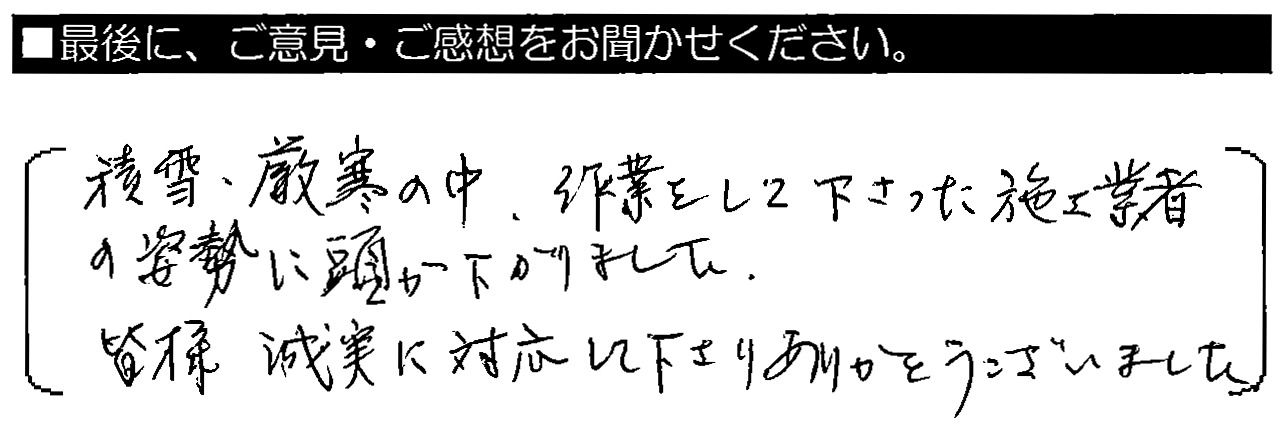 ■最後に、ご意見・ご感想をお聞かせください。
積雪、厳寒の中、作業をして下さった施工業者
の姿勢に頭が下がりました。
皆様 誠実に対応して下さりありがとうございました